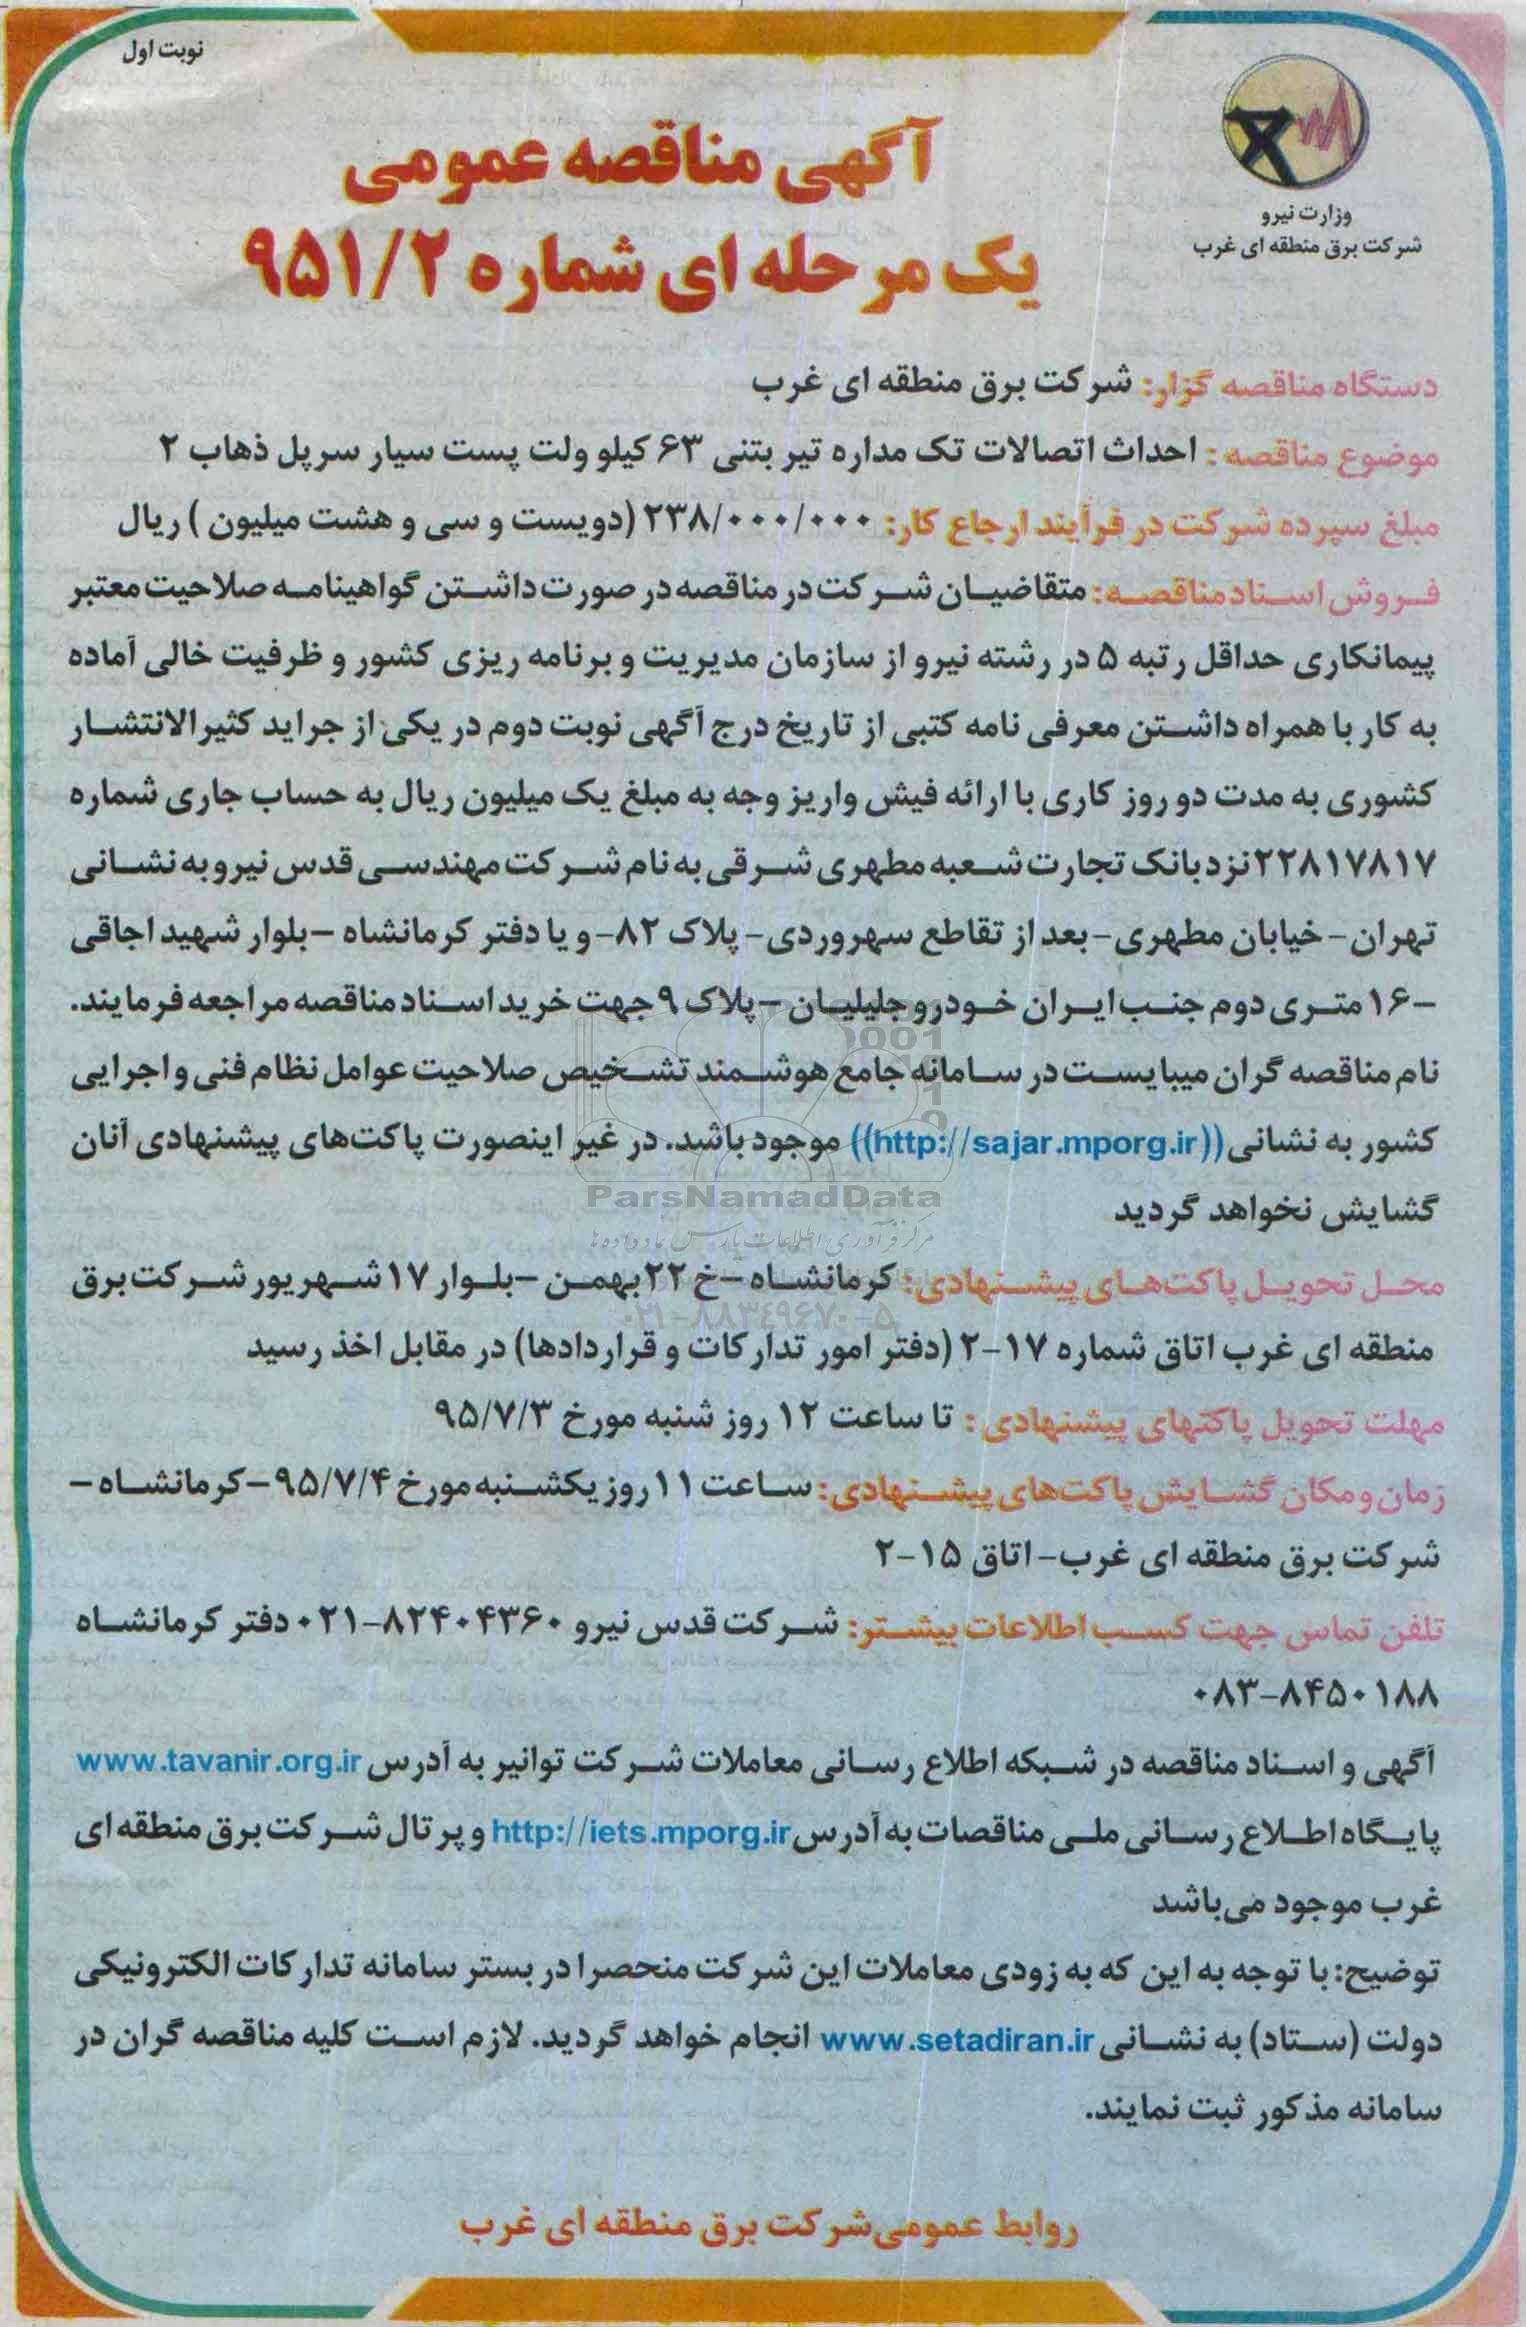 نوبت اول
وزارت نیرو
شرکت برق منطقه ای غرب
آگهی مناقصه عمومی
یک مرحله ای شماره ۹۵۱/۲
دستگاه مناقصه گزار: شرکت برق منطقه ای غرب
موضوع مناقصه : احداث اتصالات تک مداره تیر بتنی ۶۳ کیلو ولت پست سیار سرپل ذهاب ۲
مبلغ سپرده شرکت در فرآیند ارجاع کار: ۲۳۸/۰۰۰/۰۰۰ (دویست و سی و هشت میلیون ) ریال
فروش اسناد مناقصه: متقاضیان شرکت در مناقصه در صورت داشتن گواهینامه صلاحیت معتبر
پیمانکاری حداقل رتبه ۵ در رشته نیرو از سازمان مدیریت و برنامه ریزی کشور و ظرفیت خالی آماده
به کار با همراه داشتن معرفی نامه کتبی از تاریخ درج آگهی نوبت دوم در یکی از جراید کثیرالانتشار
کشوری به مدت دو روز کاری با ارائه فیش واریز وجه به مبلغ یک میلیون ریال به حساب جاری شماره
۲۲۸۱۷۸۱۷ نزد بانک تجارت شعبه مطهری شرقی به نام شرکت مهندسی قدس نیرو به نشانی
تهران- خیابان مطهری- بعد از تقاطع سهروردی- پلاک ۸۲- و یا دفتر کرمانشاه –بلوار شهید اجاقی
-۱۶ متری دوم جنب ایران خودرو جلیلیان –پلاک ۹ جهت خرید اسناد مناقصه مراجعه فرمایند.
نام مناقصه گران میبایست در سامانه جامع هوشمند تشخیص صلاحیت عوامل نظام فنی و اجرایی
کشور به نشانی ((http://sajar.mporg.ir)) موجود باشد. در غیر اینصورت پاکت‌های پیشنهادی آنان
گشایش نخواهد گردید
ParsNamadData
مرکز فرآوری اطلاعات پارس نماد داده ها
محل تحویل پاکت‌های پیشنهادی: کرمانشاه –خ ۲۲ بهمن –بلوار ۱۷ شهریور شرکت برق
۰۲۱-۸۸۳۴۹۶۷۰-۵
منطقه ای غرب اتاق شماره ۱۷-۲ (دفتر امور تدارکات و قراردادها) در مقابل اخذ رسید
مهلت تحویل پاکتهای پیشنهادی : تا ساعت ۱۲ روز شنبه مورخ ۹۵/۷/۳
زمان و مکان گشایش پاکت‌های پیشنهادی: ساعت ۱۱ روز یکشنبه مورخ ۹۵/۷/۴ –کرمانشاه –
شرکت برق منطقه ای غرب- اتاق ۱۵-۲
تلفن تماس جهت کسب اطلاعات بیشتر: شرکت قدس نیرو ۸۲۴۰۴۳۶۰-۰۲۱ دفتر کرمانشاه
۰۸۳-۸۴۵۰۱۸۸
آگهی و اسناد مناقصه در شبکه اطلاع رسانی معاملات شرکت توانیر به آدرس www.tavanir.org.ir
پایگاه اطلاع رسانی ملی مناقصات به آدرس http://iets.mporg.ir و پرتال شرکت برق منطقه ای
غرب موجود می‌باشد
توضیح: با توجه به این که به زودی معاملات این شرکت منحصرا در بستر سامانه تدارکات الکترونیکی
دولت (ستاد) به نشانی www.setadiran.ir انجام خواهد گردید. لازم است کلیه مناقصه گران در
سامانه مذکور ثبت نمایند.
روابط عمومی شرکت برق منطقه ای غرب